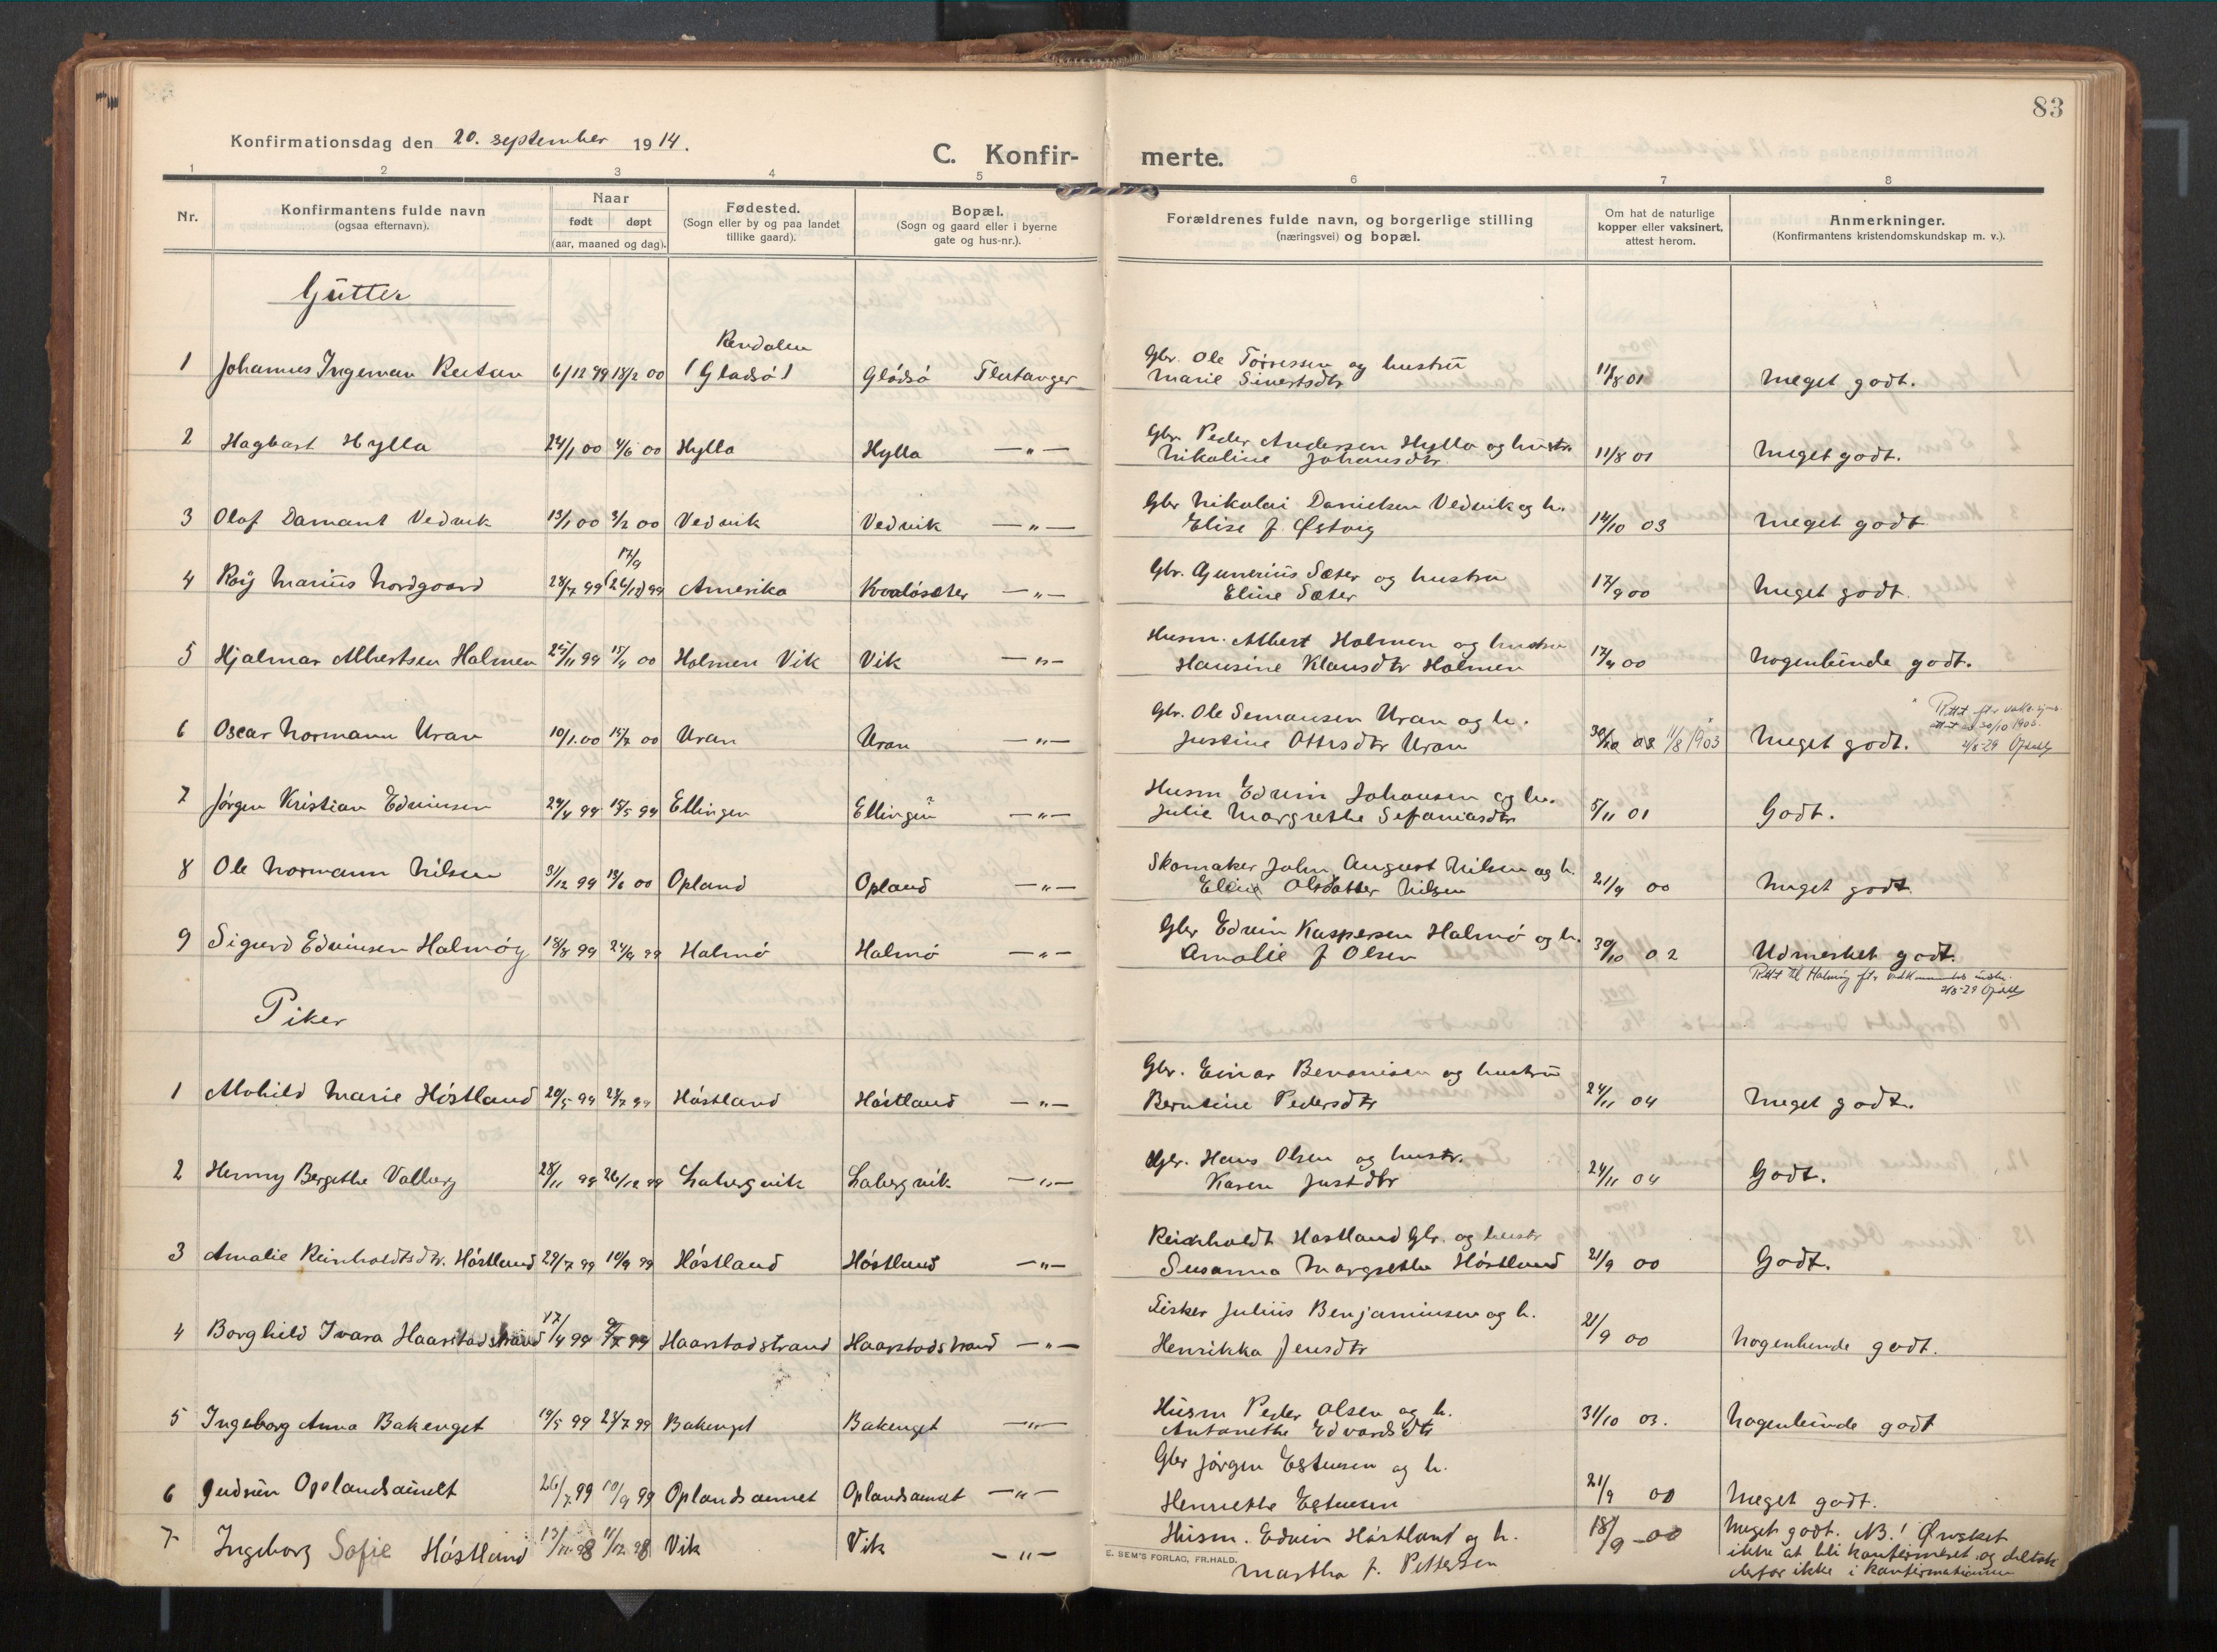 83
Konfirmationsdag den 20. september 1914.
C. Konfir- merte.
1 2 3 4 5 6 7 8
Nr.
Konfirmantens fulde navn
(ogsaa efternavn).
Naar
født døpt
(aar, maaned og dag).
Fødested.
(Sogn eller by og paa landet
tillike gaard).
Bopæl.
(Sogn og gaard eller i byerne
gate og hus-nr.).
Forældrenes fulde navn, og borgerlige stilling
(næringsvei) og bopæl.
Om hat de naturlige
kopper eller vaksinert,
attest herom.
Anmerkninger.
(Konfirmantens kristendomskundskap m. v.).
Gutter
Rendalen
1 Johannes Ingeman 6/12 99 18/2 00 (Gladsø) Gladsø Flatanger
Gbr. Ole Torressen og hustru
Marie Sivertsdtr 11/8 01 Meget godt.
2 Hagbart Hylla 24/1 00 4/6 00 Hylla Hylla —"—
Gbr. Peder Andersen Hylla og hustr.
Nikoline Johansdtr. 11/8 01 Meget godt.
3 Olaf Damant Vedvik 13/1 00 3/2 00 Vedvik Vedvik —"—
Gbr Nikolai Danielsen Vedvik og h.
Elise f. Østvig 14/10 03 Meget godt
17/9
4 Roy Marius Nordgaard 28/7 99 (26/12) 99 Amerika Kvaløsæter —"—
Gbr. Gunerius Sæter og hustru
Eline Sæter 17/9 00 Meget godt.
5 Hjalmar Albertsen Holmen 25/11 99 15/4 00 Holmen Vik Vik —"—
Husm. Albert Holmen og hustru
Hansine Klausdtr Holmen 17/9 00 Nogenlunde godt.
6 Oscar Normann Uran 10/1 00 15/7 00 Uran Uran —"—
Gbr. Ole Semansen Uran og h.
Justine Ottesdtr Uran 30/10 03 11/8 1903 Meget godt.
Rettet
30/10 1903.
7 Jørgen Kristian Edvinsen 24/4 99 15/5 99 Ellingen Ellingen —"—
Husm Edvin Johansen og h.
Julie Margrethe Sefaniasdtr 5/11 01 Godt.
8 Ole Normann Nilsen 31/12 99 13/6 00 Opland Opland —"—
Skomaker John August Nilsen og h.
Eline Olsdatter Nilsen 21/9 00 Meget godt.
9 Sigurd Edvinsen Halmøy 18/8 99 24/9 99 Halmø Halmø —"—
Gbr Edvin Kaspersen Halmø og h.
Amalie f Olsen 30/10 02 Udmerket godt.
Rettet til Halmøy
Piker
1 Alvhild Marie Høstland 20/5 99 23/7 99 Høstland Høstland —"—
Gbr. Einar Benonisen og hustru
Berntine Pedersdtr 24/11 04 Meget godt.
2 Henny Bergethe Valberg 28/11 99 26/12 99 Labergvik Labergvik —"—
Gbr. Hans Olsen og hustr.
Karen Justdtr 24/11 04 Godt.
3 Amalie Reinholdtsdtr. Høstland 29/7 99 10/9 99 Høstland Høstland —"—
Reinholdt Høstland Gbr. og hustr
Susanna Margrethe Høstland 21/9 00 Godt.
4 Borghild Ivara Haarstadstrand 17/4 99 99 Haarstadstrand Haarstadstrand —"—
Fisker Julius Benjaminsen og h.
Henrikka Jensdtr 21/9 00 Nogenlunde godt.
5 Ingeborg Anna Bakenget 19/5 99 23/7 99 Bakenget Bakenget —"—
Husm Peder Olsen og h.
Antonethe Edvardsdtr 31/10 03. Nogenlunde godt
6 Gudrun Oplandsaunet 26/7 99 10/9 99 Oplandsaunet Oplandsaunet —"—
Gbr Jørgen Estensen og h.
Henriette Estensen 21/9 00 Meget godt.
7 Ingeborg Sofie Høstland 13/11 98 11/12 98 Vik Vik —"—
Husm. Edvin Høstland og h.
Martha f. Pettersen 18/9 - 00 Meget godt. NB! Ønsket
ikke at bli konfirmeret og deltok
derfor ikke i konfirmationen
E. SEM'S FORLAG, FR.HALD.